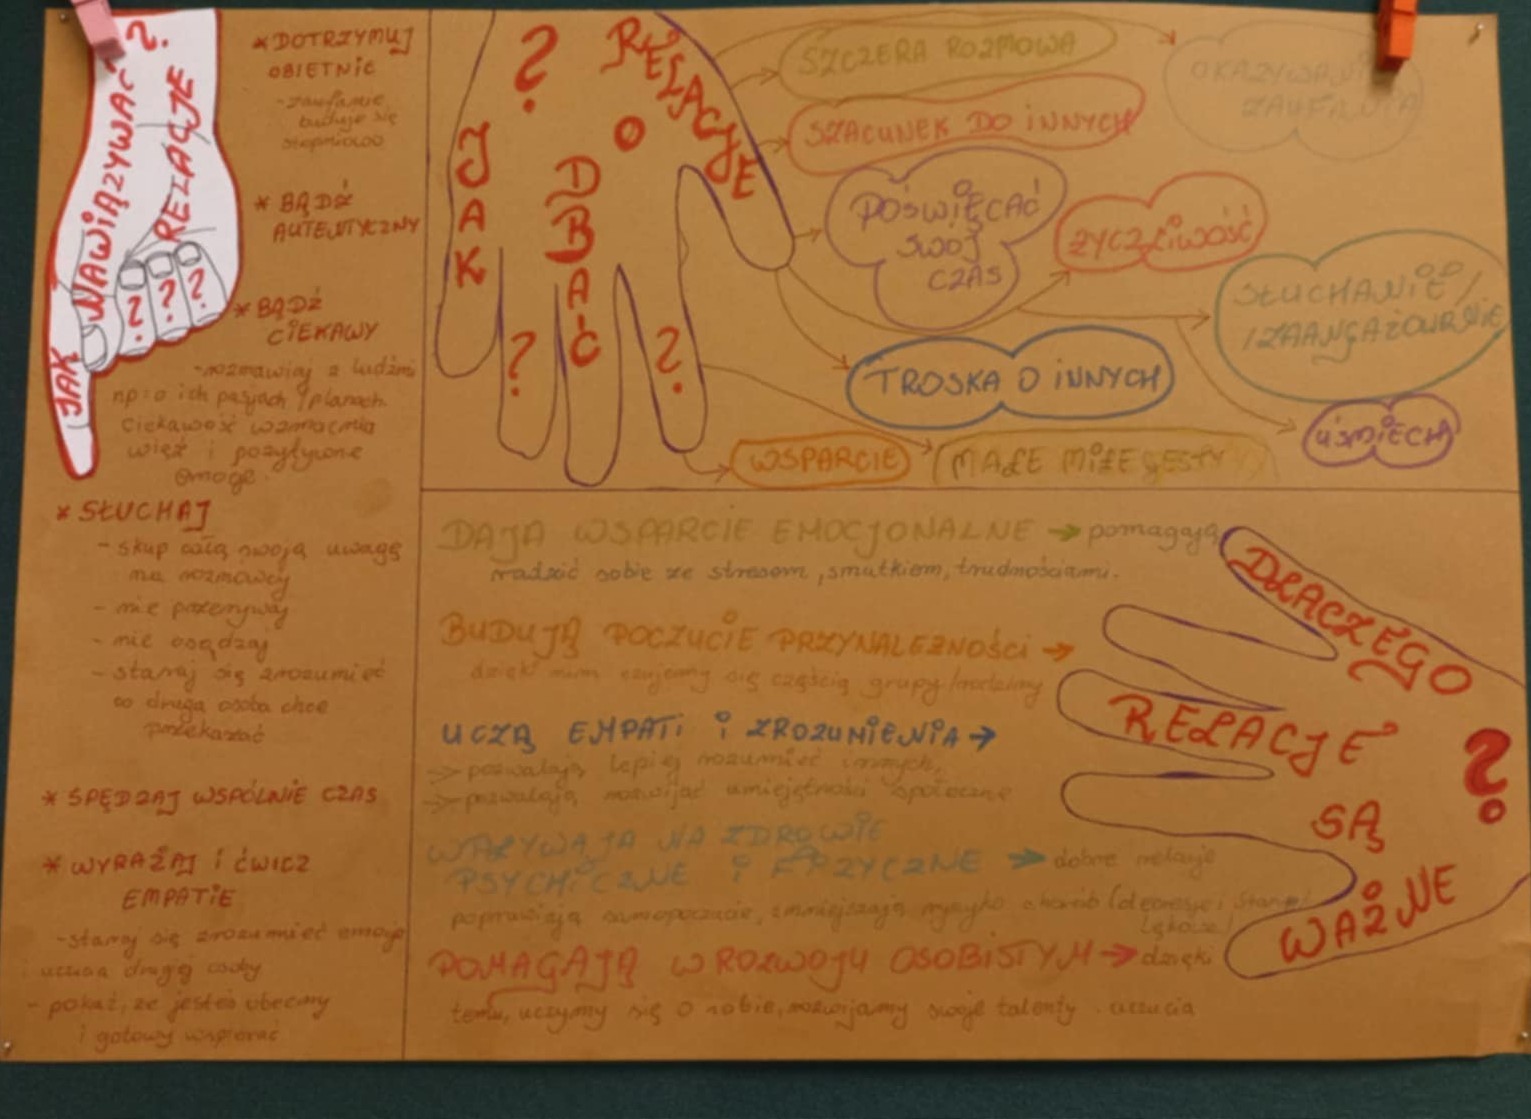 JAK NAWIĄZYWAĆ RELACJE ?
? ? ?
* DOTRZYMUJ
OBIETNIC
- zaufanie
buduje się
stopniowo
* BĄDŹ
AUTENTYCZNY
* BĄDŹ
CIEKAWY
- rozmawiaj z ludźmi
np. o ich pasjach / planach.
Ciekawość wzmacnia
więź i pozytywne
emocje.
* SŁUCHAJ
- skup całą swoją uwagę
na rozmowcy
- nie przerywaj
- nie osądzaj
- staraj się zrozumieć
co druga osoba chce
przekazać
* SPĘDZAJ WSPÓLNIE CZAS
* WYRAŻAJ I ĆWICZ
EMPATIE
- staraj się zrozumieć emocje
uczucia drugiej osoby
- pokaż, że jesteś obecny
i gotowy wspierać
JAK DBAĆ O RELACJE ?
? ?
SZCZERA ROZMOWA
OKAZYWANIE
ZAUFANIA
SZACUNEK DO INNYCH
POŚWIĘCAĆ
SWÓJ
CZAS
ŻYCZLIWOŚĆ
SŁUCHANIE /
/ ZAANGAŻOWANIE
TROSKA O INNYCH
UŚMIECH
WSPARCIE
MAŁE MIŁE GESTY
DAJĄ WSPARCIE EMOCJONALNE → pomagają
radzić sobie ze stresem, smutkiem, trudnościami.
BUDUJĄ POCZUCIE PRZYNALEŻNOŚCI →
dzięki nim czujemy się częścią grupy/rodziny
UCZĄ EMPATI I ZROZUMIENIA →
→ pozwalają lepiej rozumieć innych,
→ pozwalają rozwijać umiejętności społeczne
WPŁYWAJĄ NA ZDROWIE
PSYCHICZNE I FIZYCZNE → dobre relacje
poprawiają samopoczucie, zmniejszają ryzyko chorób (depresje i stany
lękowe)
POMAGAJĄ W ROZWOJU OSOBISTYM → dzięki
temu, uczymy się o sobie, rozwijamy swoje talenty uczucia
DLACZEGO
RELACJE
SĄ
WAŻNE
?